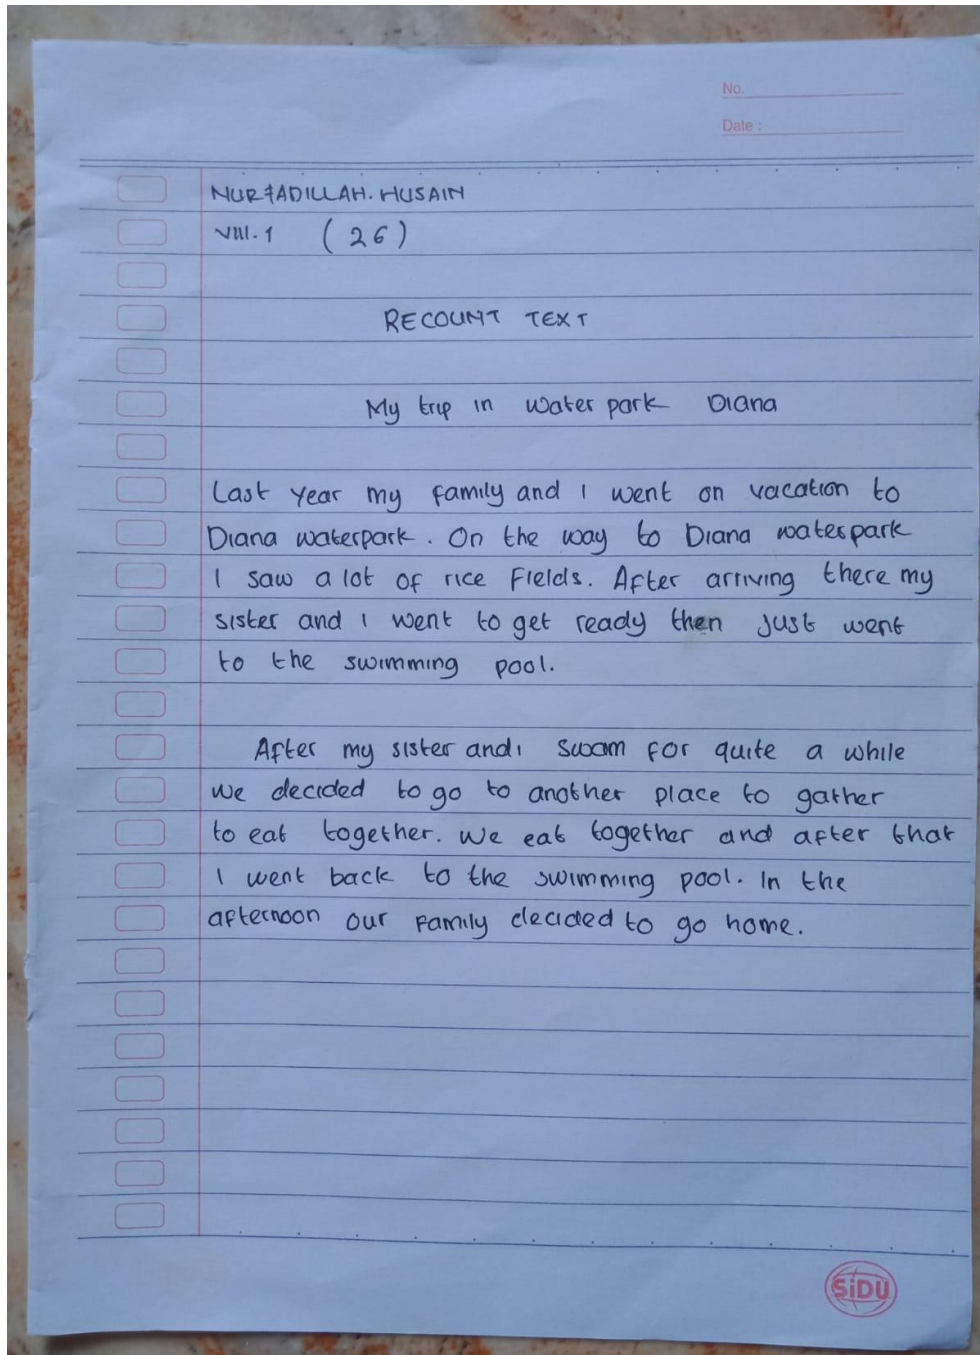 No.
Date :
NURFADILLAH. HUSAIN
VIII. 1 (26)
RECOUNT TEXT
My trip in water park Diana
Last year my family and I went on vacation to
Diana waterpark. On the way to Diana waterpark
I saw a lot of rice fields. After arriving there my
sister and I went to get ready then just went
to the swimming pool.
After my sister and i swam for quite a while
we decided to go to another place to gather
to eat together. We eat together and after that
I went back to the swimming pool. In the
afternoon our family decided to go home.
SiDU